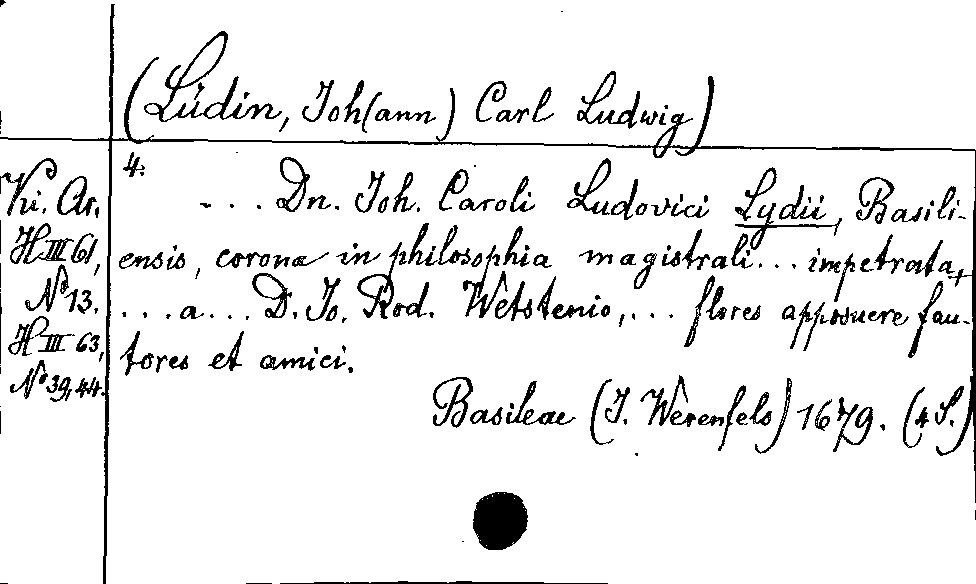 (Lüdin, Joh(ann) Carl Ludwig)
4.
Ki. Ar.
H III 61,
No 13.
H III 63,
No 39, 44.
... Dn. Joh. Caroli Ludovici Lydii, Basili-
ensis, coronæ in philosophia magistrali... impetrata,
...a... D. Jo. Rod. Wetstenio,... flores apposuere fau-
tores et amici.
Basileae (J. Werenfels) 1679. (4 S.)